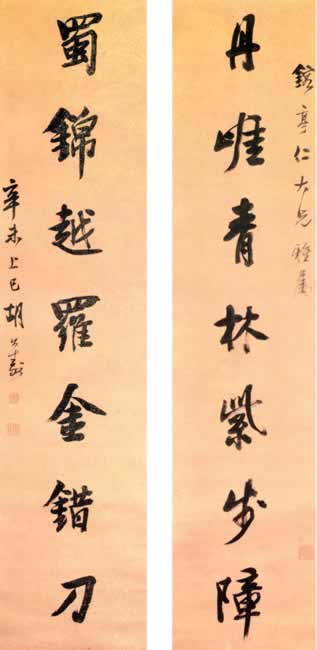 亭仁大兄雅屬
丹崕青林紫步障
蜀錦越羅金錯刀
辛未上巳胡公壽